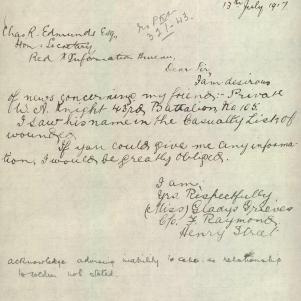 13th July 1917
Chas R. Edmunds Esq,
Hon: Secretary
Red X Information Bureau,
Dear Sir,
I am desirous
of news concerning my friend:- Private
W. A. Knight 43rd Battalion No 105.
I saw his name in the Casualty Lists of
wounded.
If you could give me any informa-
tion, I would be greatly obliged.
I am,
Yrs Respectfully
(Miss) Gladys Greeves
C/o. F Raymond
Henry Street
acknowledge advising inability to as relationship
to soldier not stated.